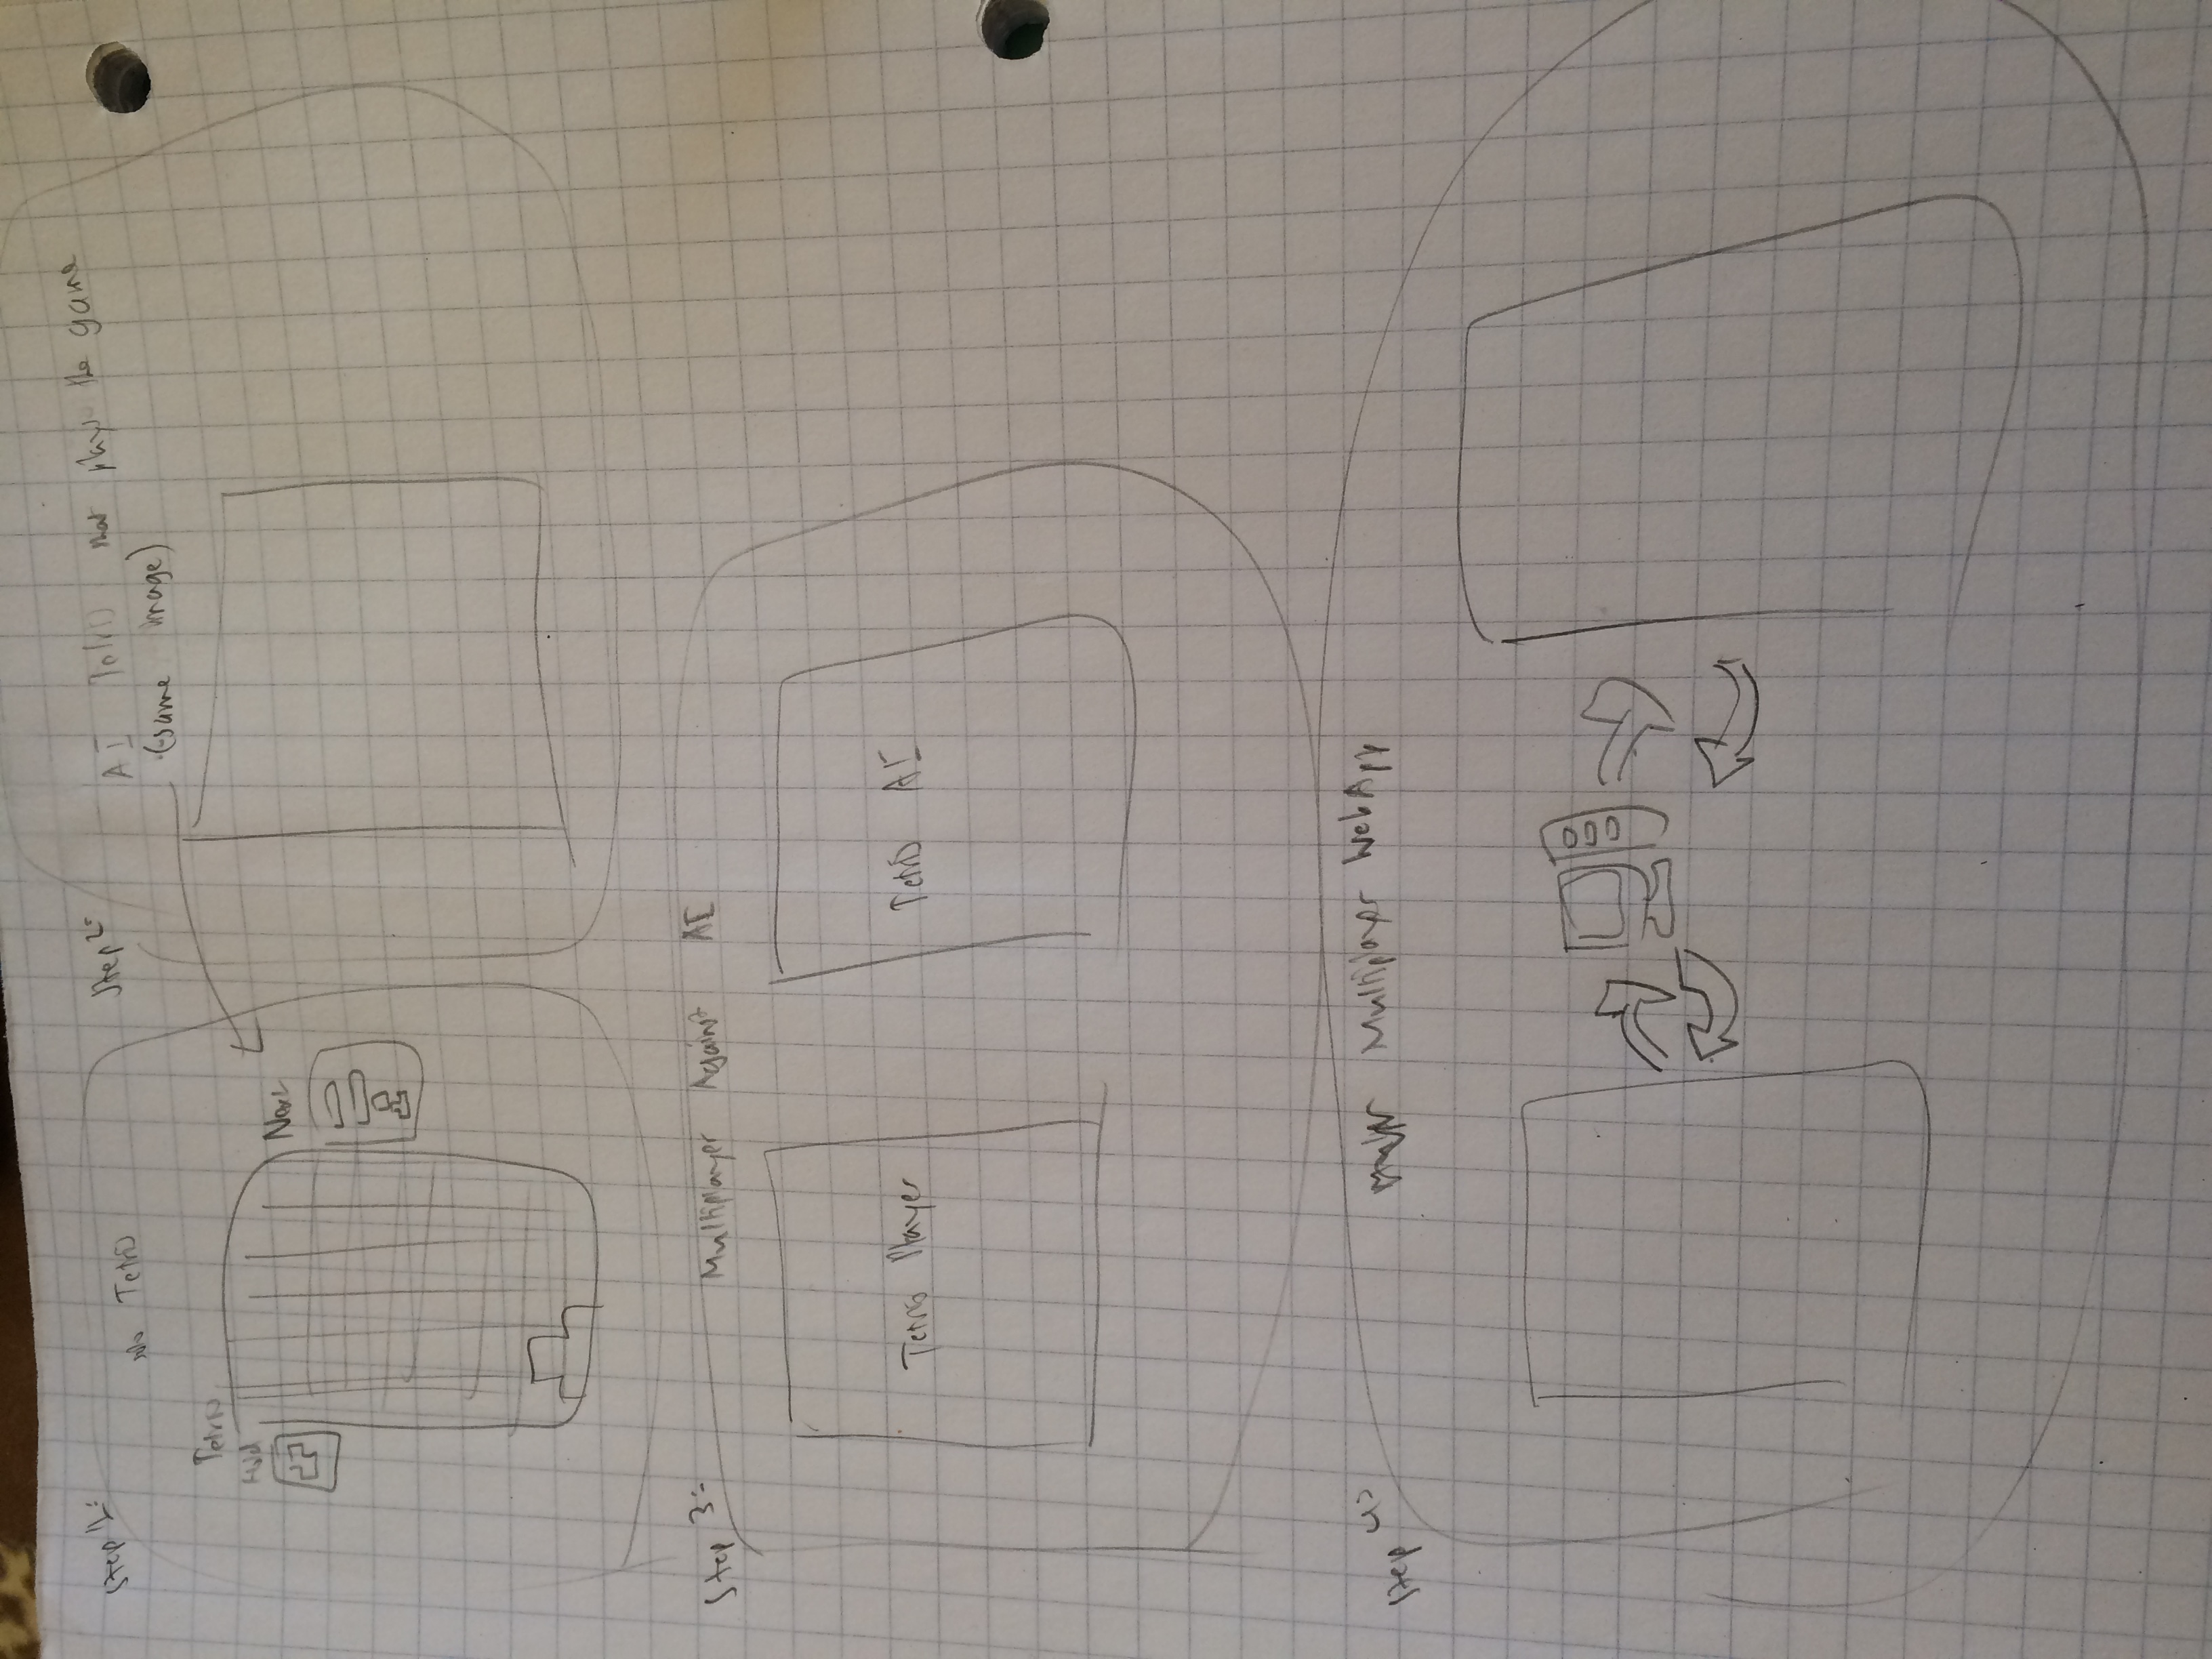 Step 1:
Tetris
Tetris
Hold
Next
Step 2:
AI Tetris that plays the game
(same image)
Step 3:
Multiplayer Against AI
Tetris Player
Tetris AI
Step 4:
Multiplayer WebApp